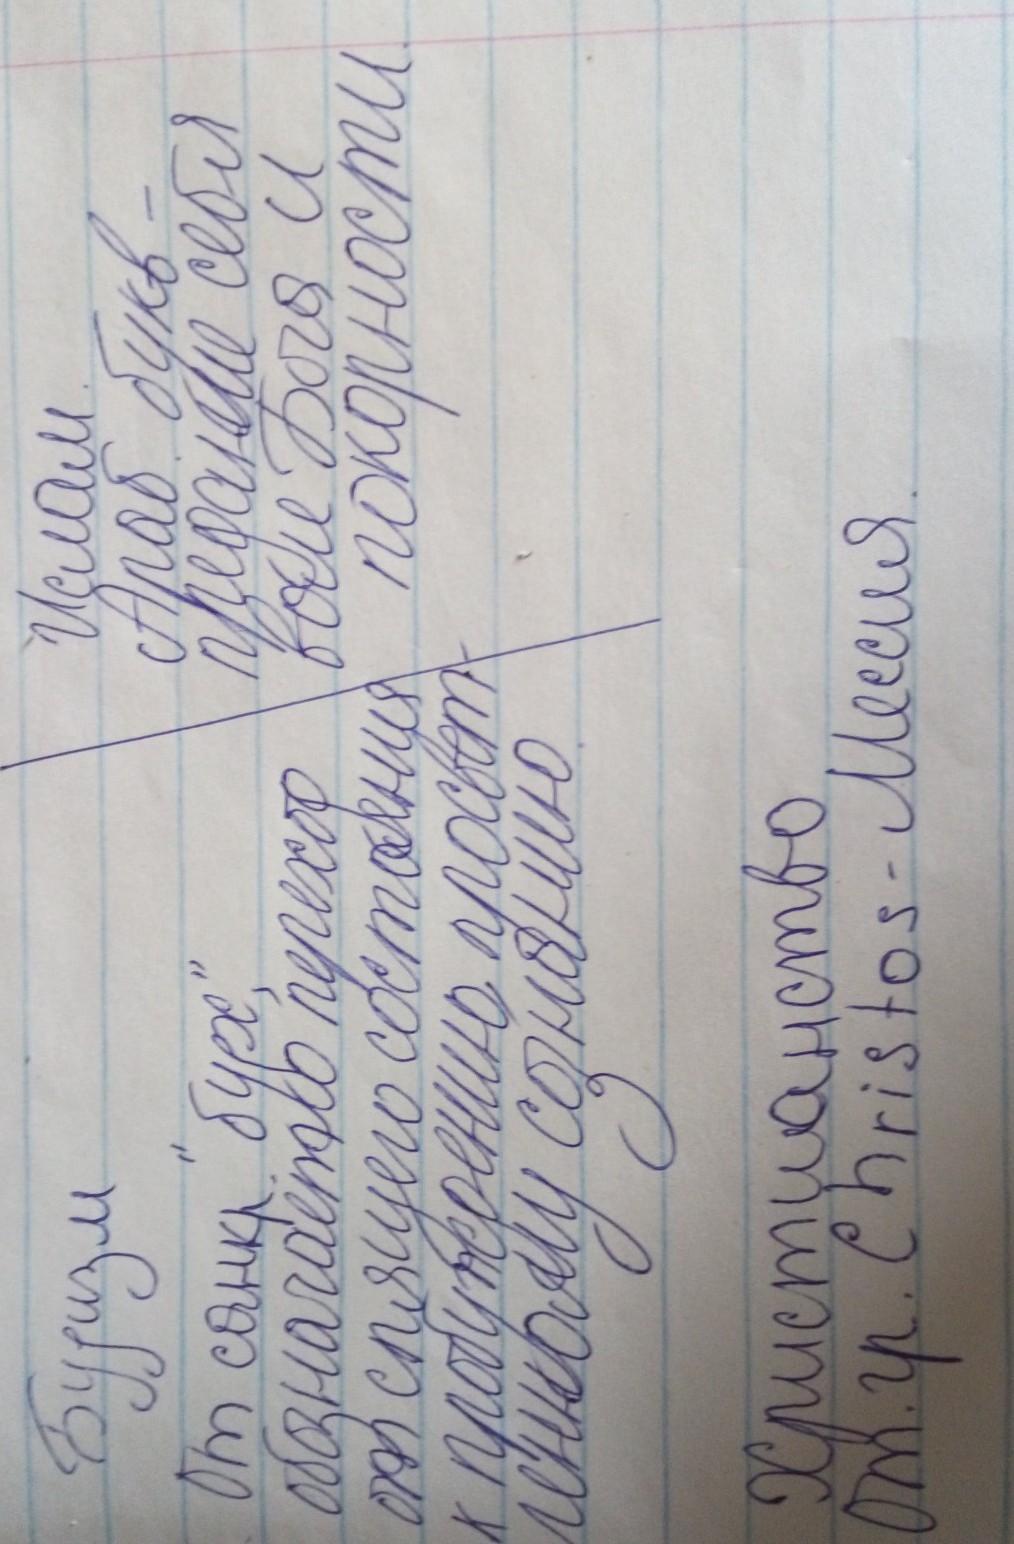 Будизм
От санкр. "будх"
обозначает ко переход
от спящего состояния
к пробуждению, просвет-
ленному сознанию
Ислам
Араб букв -
предание себя
воле Бога и
покорности
Христианство
От. гр. Christos - Мессия